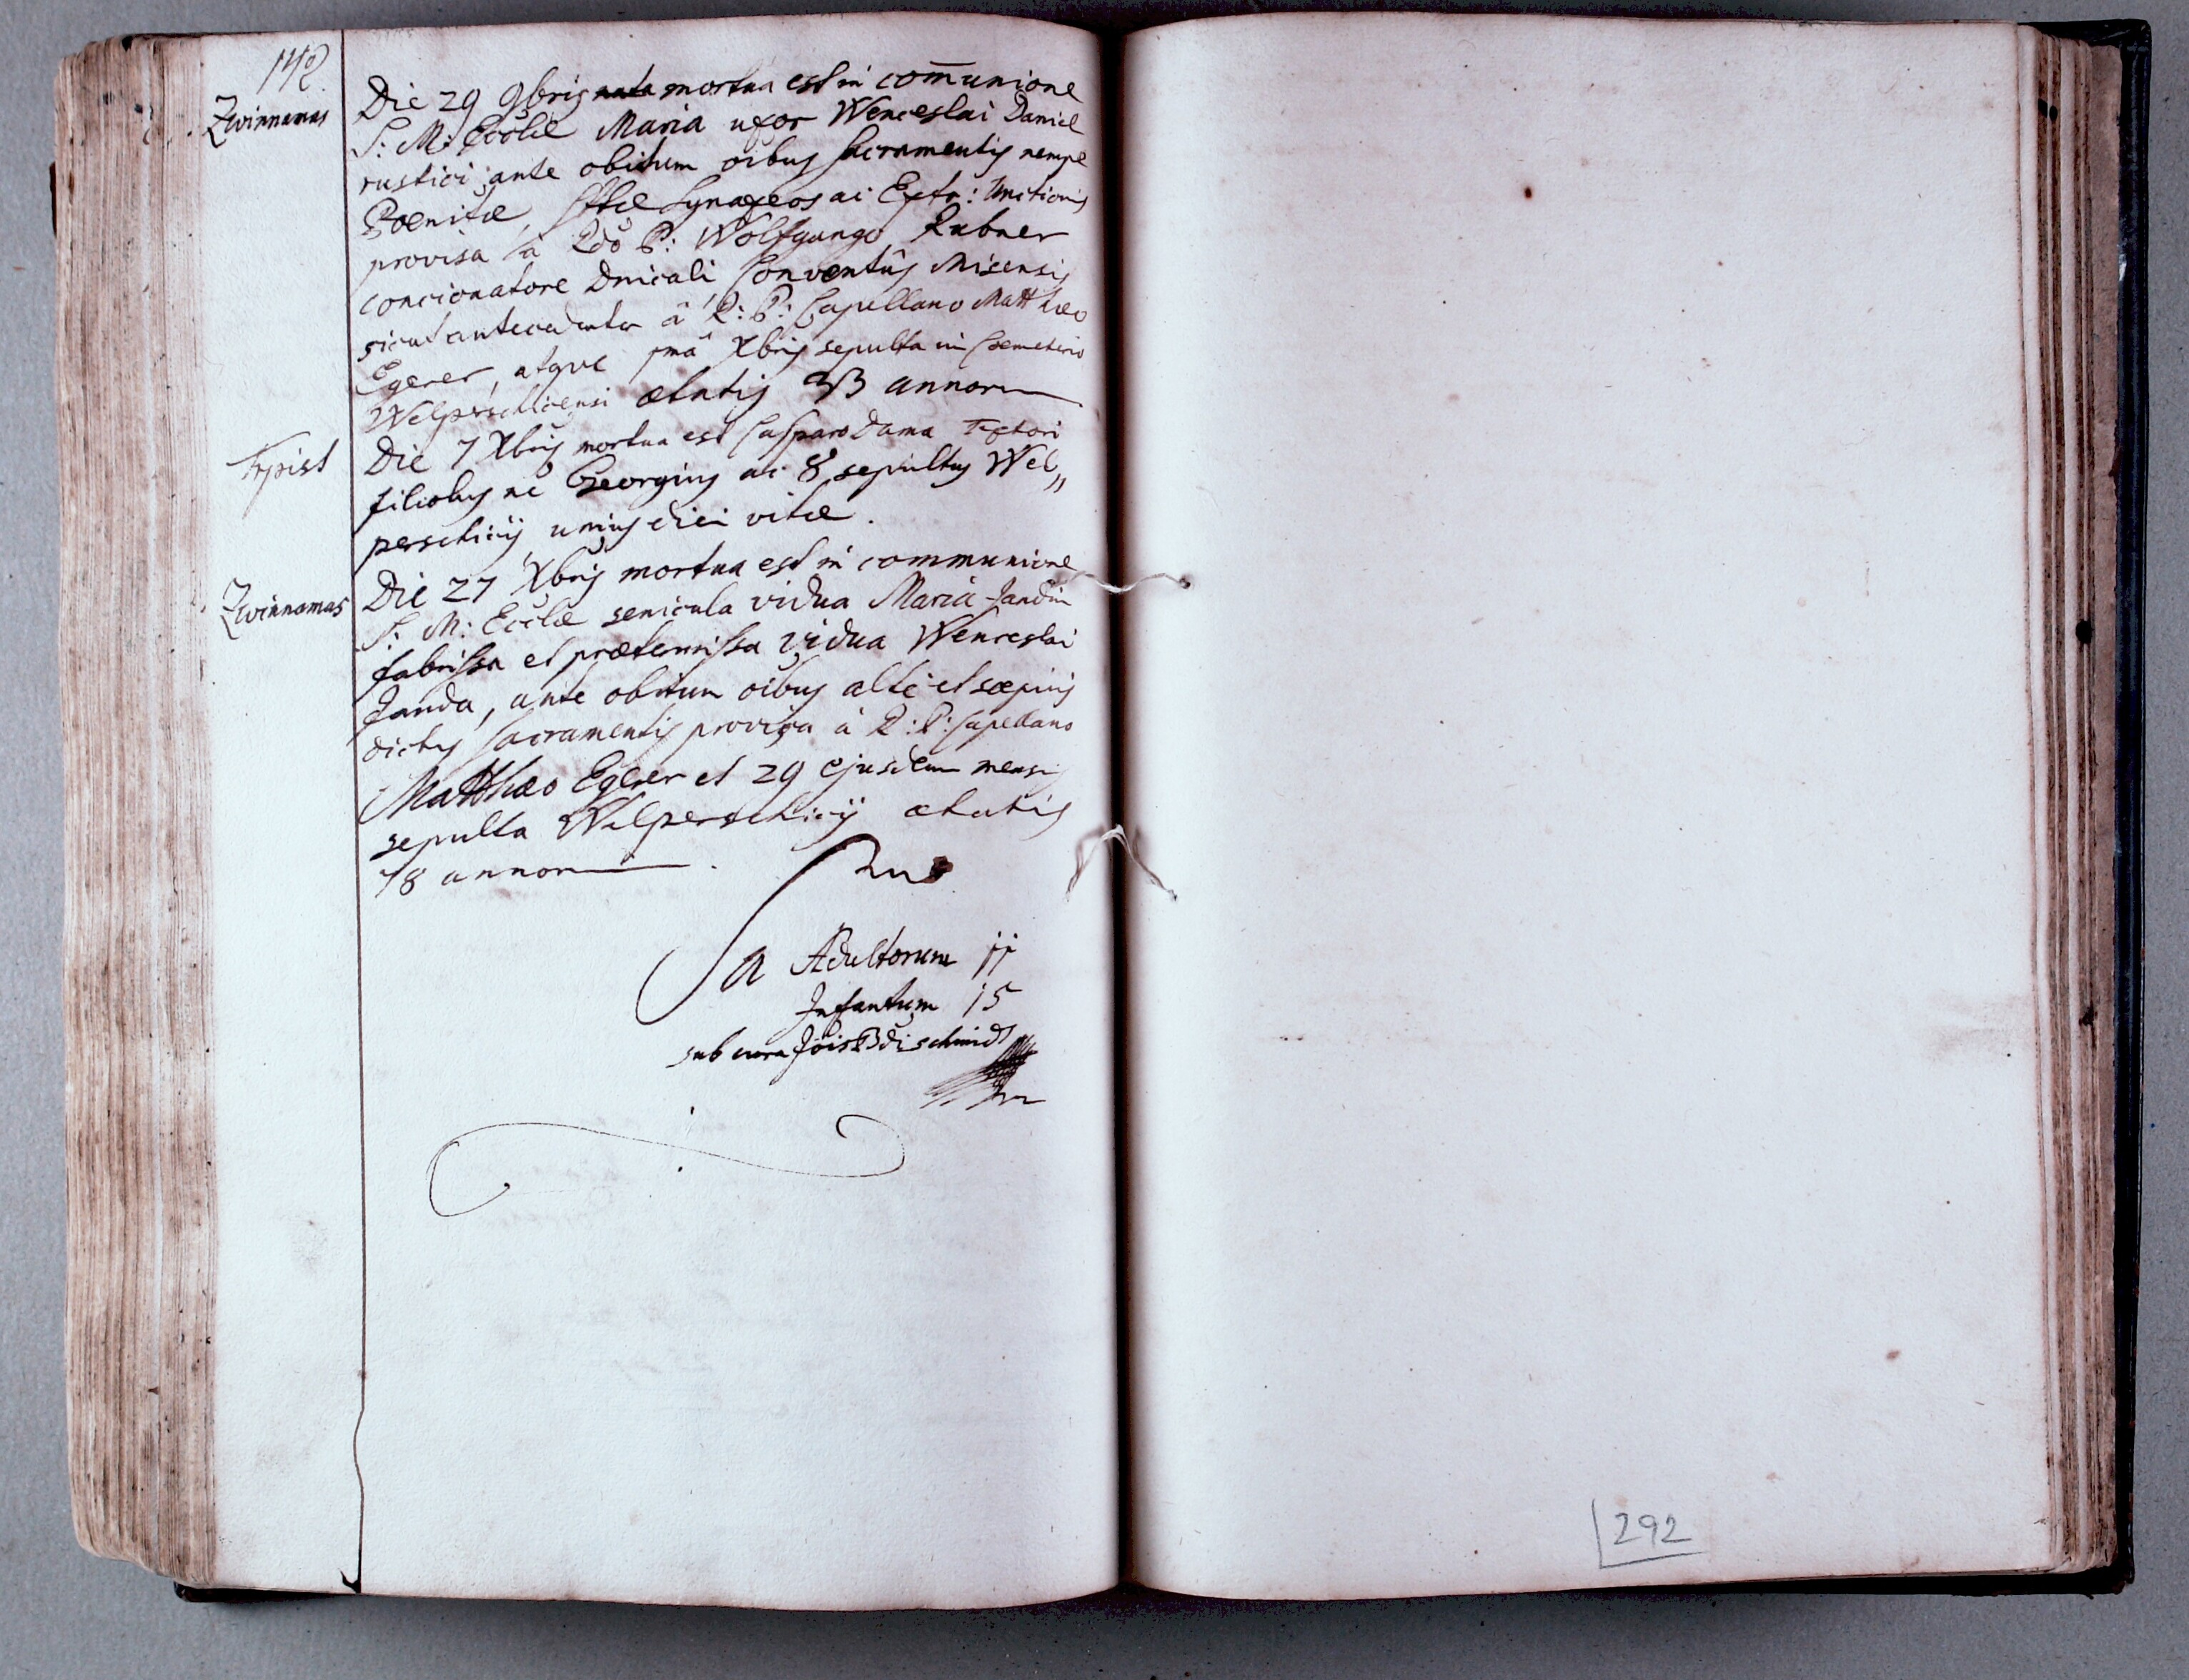 Zwinnamas
Die 29 9bris nata mortua est in com̄unione
S: M: Ecclæ Maria uxor Wenceslai Daniel
rustici ante obitum oibus sacramentis nempe
Poenitæ, Synaxeos ac Extr: Unctionis
provisa à Rdo P: Wolfgango Rubner
concionatore Dnicali Conventûs Misensis
sicut antecedenter à R: P: Capellano Matthæo
Egerer, atque 1mâ Xbris sepulta in Coemeterio
Welperschicensi ætatis annorum
Trpist
Die 7 Xbris mortua est Casparo Dama Textori
filiolus nē Georgius ac 8 sepultus Wel„
perschicij unius diei vitæ.
Zwinnamas
Die 27 Xbris mortua est in communione
S: M: Ecclæ senicula vidua Maria Jandin
fabrissa et prætermissa vidua Wenceslai
Janda, ante obitum oibus alte et sæpius
dictis sacramentis provisa à R: P: Capellano
Matthæo Egerer et 29 ejusdem mensis
sepulta Welperschicij ætatis
78 annorum.
Sa Adultorum 11
Infantum 15
sub cura Jois schmidt
292